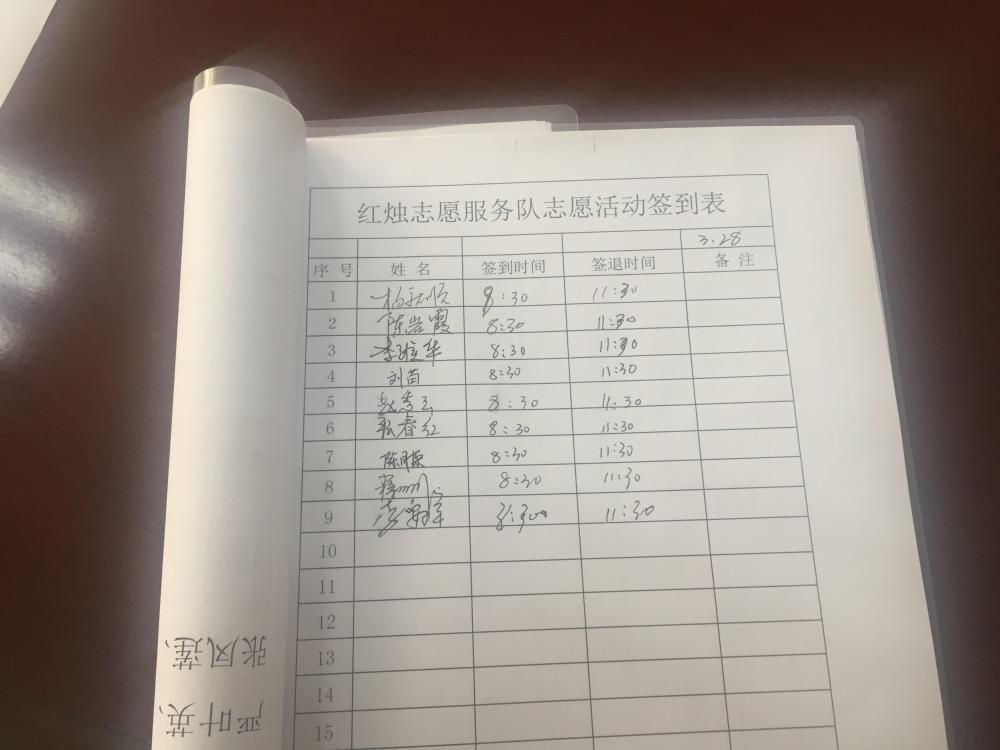 红烛志愿服务队志愿活动签到表
3.28
序号 姓名 签到时间 签退时间 备注
1 杨 顺 8:30 11:30
2 陈岩霞 8:30 11:30
3 李 华 8:30 11:30
4 刘苗 8:30 11:30
5 赵秀 8:30 11:30
6 张春红 8:30 11:30
7 陈 8:30 11:30
8 8:30 11:30
9 8:30 11:30
10
11
12
13
14
15
张凤莲、
严叶英、